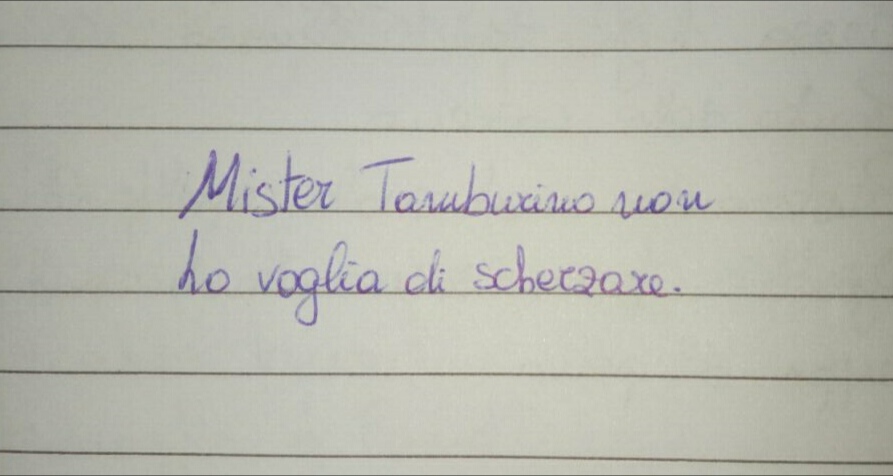 Mister Tamburino non
ho voglia di scherzare.